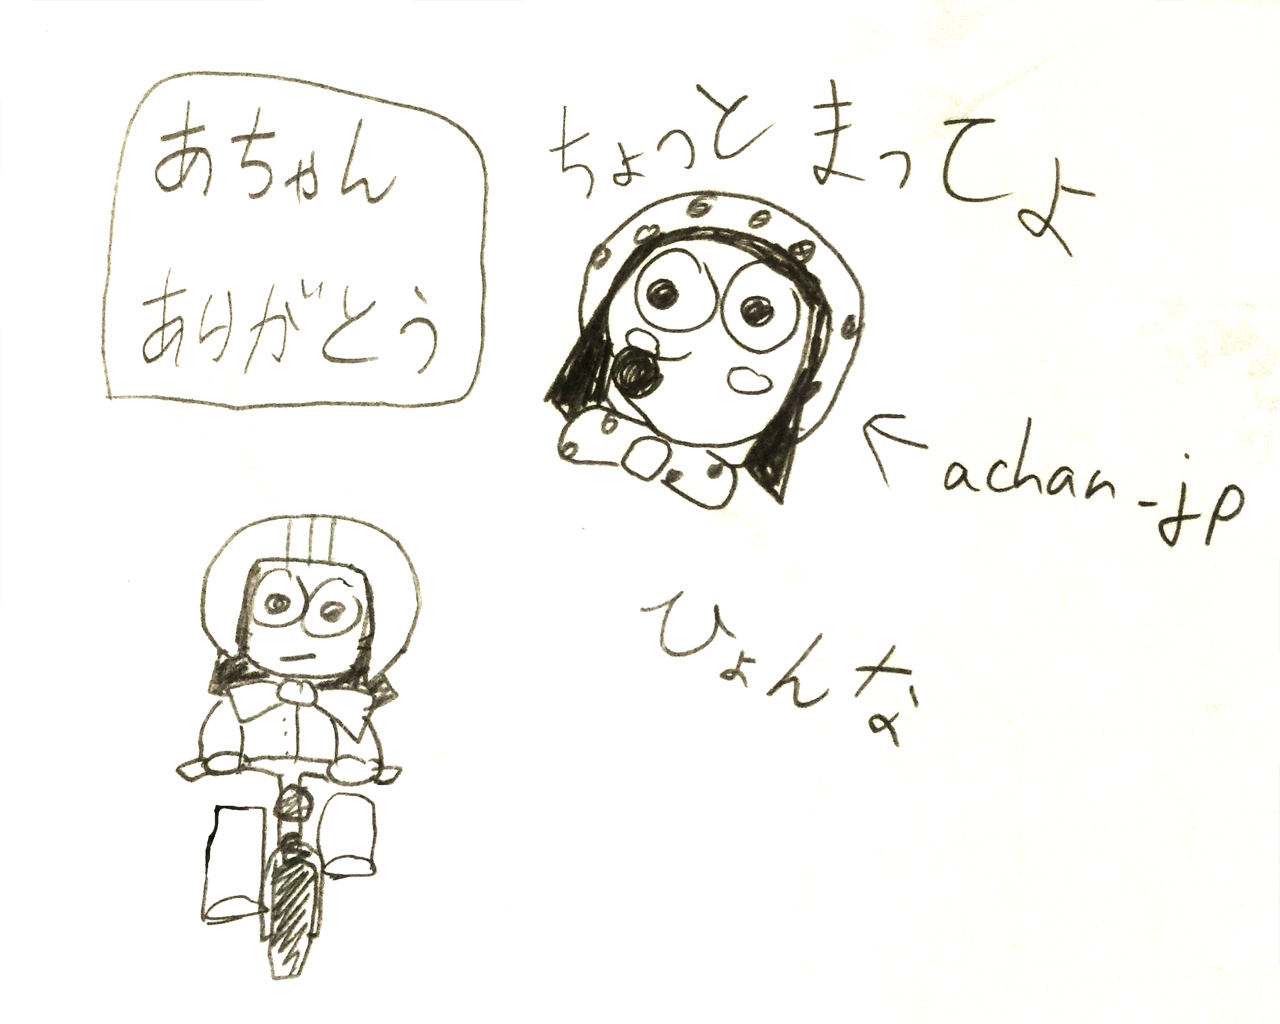 あちゃん
ありがとう
ちょっとまってよ
← achan-jp
ひょんな